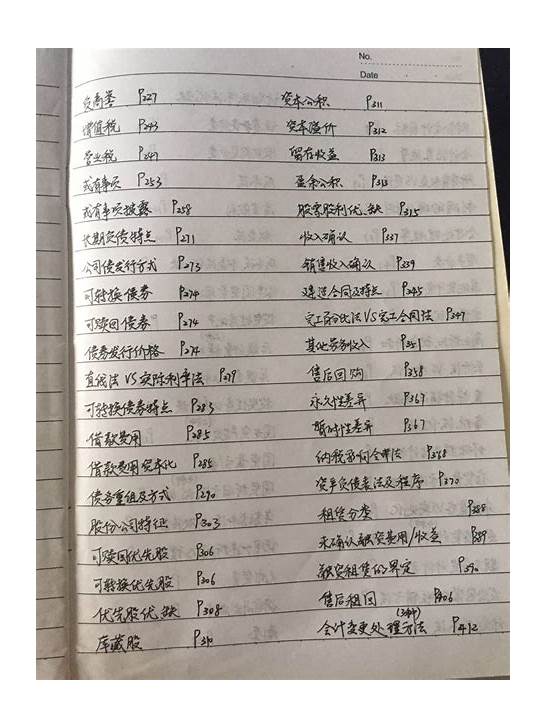 No.
Date
负商誉 P227
增值税 P243
营业税 P247
或有事项 P253
或有事项披露 P258
长期负债特点 P271
公司债发行方式 P273
可转换债券 P274
可赎回债券 P274
债券发行价格 P274
直线法 VS 实际利率法 P279
可转换债券特点 P283
借款费用 P285
借款费用资本化 P285
债务重组及方式 P290
股份公司特征 P303
可赎回优先股 P306
可转换优先股 P306
优先股优、缺 P308
库藏股 P310
资本公积 P311
资本溢价 P312
留存收益 P313
盈余公积 P313
股票股利优、缺 P315
收入确认 P337
销售收入确认 P339
建造合同及特点 P345
完工百分比法 VS 完工合同法 P347
其他劳务收入 P351
售后回购 P358
永久性差异 P367
暂时性差异 P367
纳税影响会计法 P368
资产负债表法及程序 P370
租赁分类 P388
未确认融资费用/收益 P389
融资租赁的界定 P390
售后租回 P406
会计变更处理方法 P412